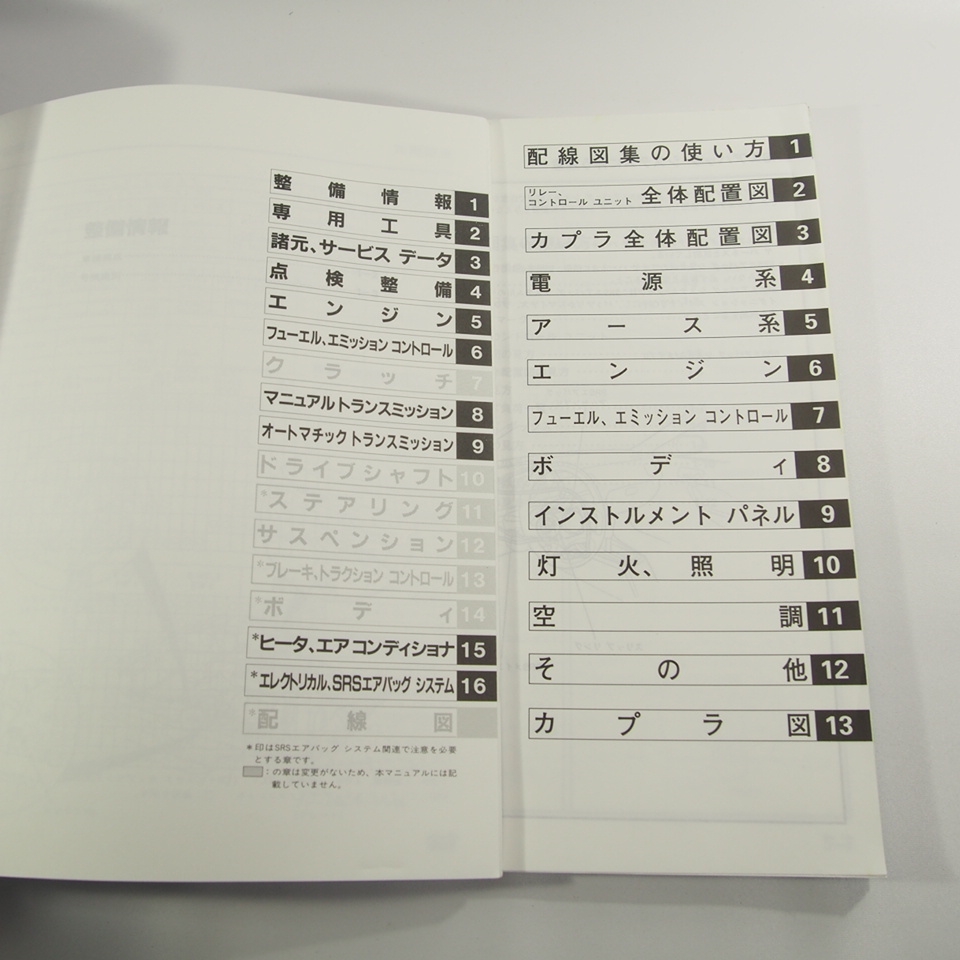 整備情報 1
専用工具 2
諸元、サービス データ 3
点検整備 4
エンジン 5
フューエル、エミッション コントロール 6
クラッチ 7
マニュアルトランスミッション 8
オートマチック トランスミッション 9
ドライブシャフト 10
*ステアリング 11
サスペンション 12
*ブレーキ、トラクション コントロール 13
*ボディ 14
*ヒータ、エアコンディショナ 15
*エレクトリカル、SRSエアバッグ システム 16
*配線図
*印はSRSエアバッグ システム関連で注意を必要
とする章です。
：の章は変更がないため、本マニュアルには記
載していません。
配線図集の使い方 1
リレー、
コントロール ユニット 全体配置図 2
カプラ全体配置図 3
電源系 4
アース系 5
エンジン 6
フューエル、エミッション コントロール 7
ボディ 8
インストルメント パネル 9
灯火、照明 10
空調 11
その他 12
カプラ図 13